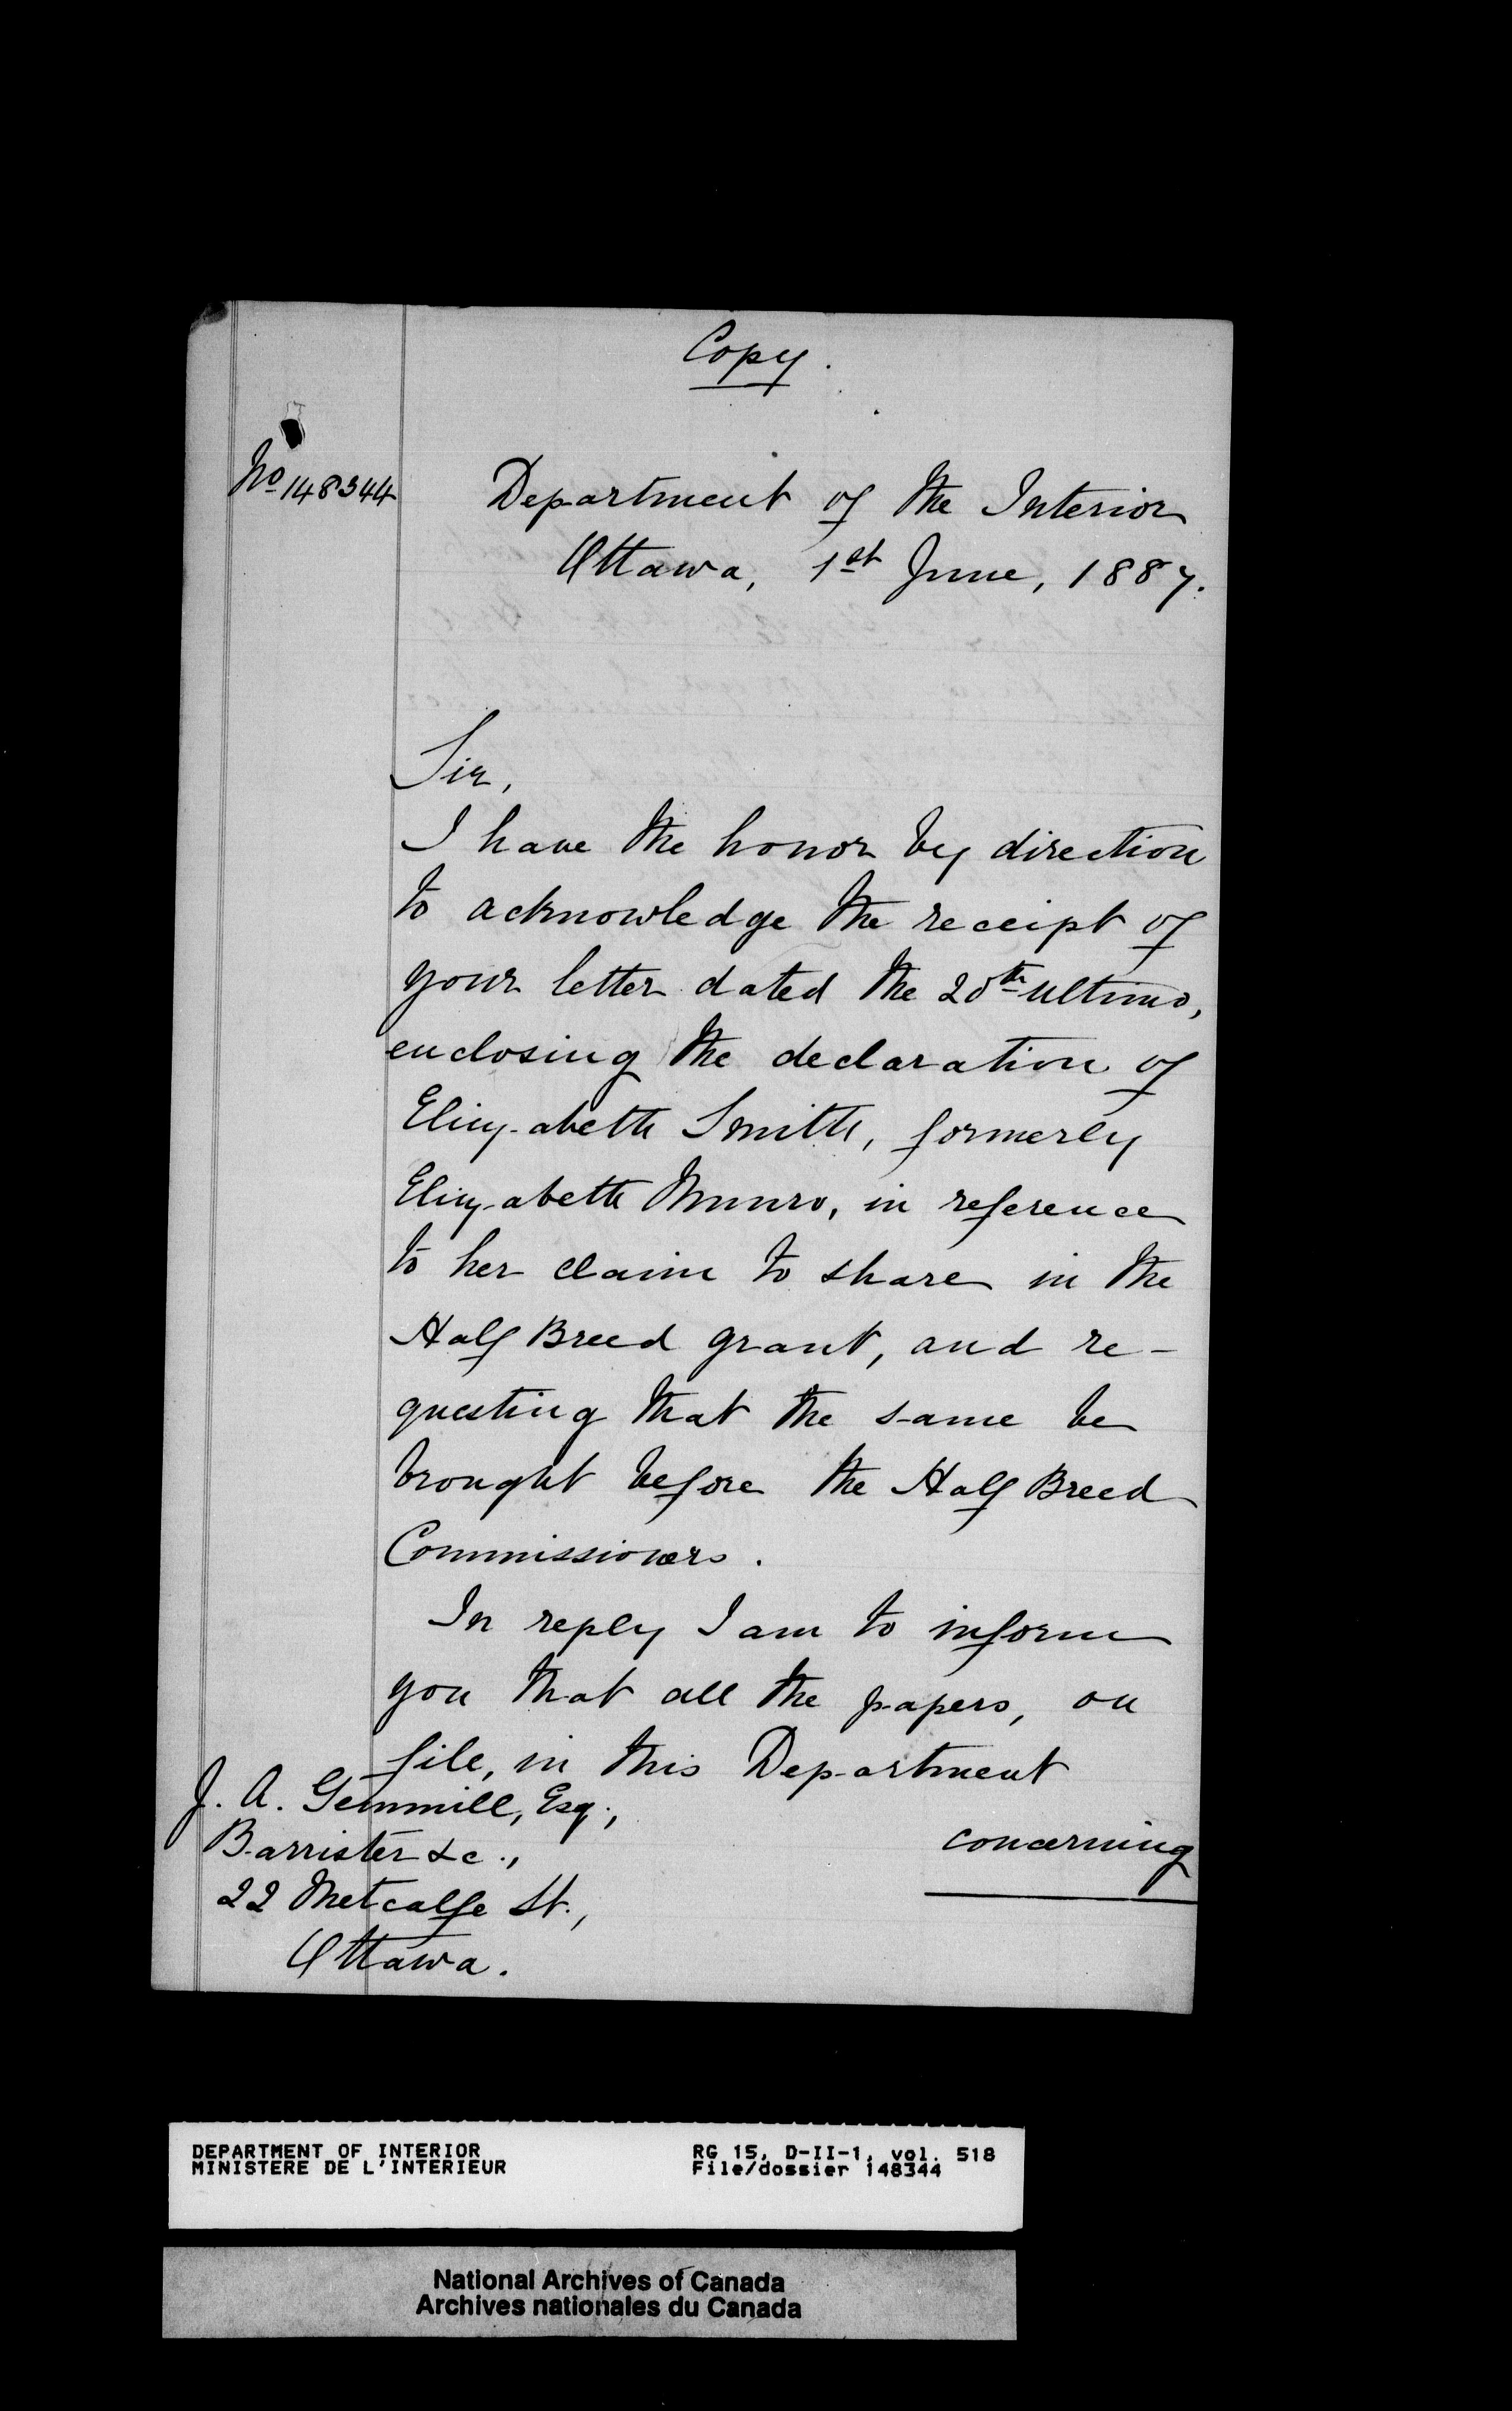 Copy.
No 148344
Department of the Interior
Ottawa, 1st June, 1887.
Sir,
I have the honor by direction
to acknowledge the receipt of
your letter dated the 20th ultimo,
enclosing the declaration of
Elizabeth Smith, formerly
Elizabeth Munro, in reference
to her claim to share in the
Half Breed grant, and re-
questing that the same be
brought before the Half Breed
Commissioners.
In reply I am to inform
you that all the papers, on
file, in this Department
concerning
J. A. Gemmill, Esq.,
Barrister &c.,
22 Metcalfe St.,
Ottawa.
DEPARTMENT OF INTERIOR
MINISTERE DE L'INTERIEUR
RG 15, D-II-1, vol. 518
File/dossier 148344
National Archives of Canada
Archives nationales du Canada